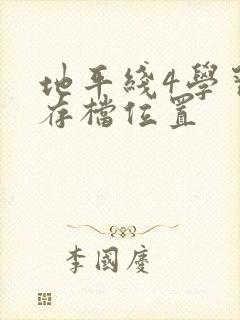 地平綫4學習
存檔位置
李國慶